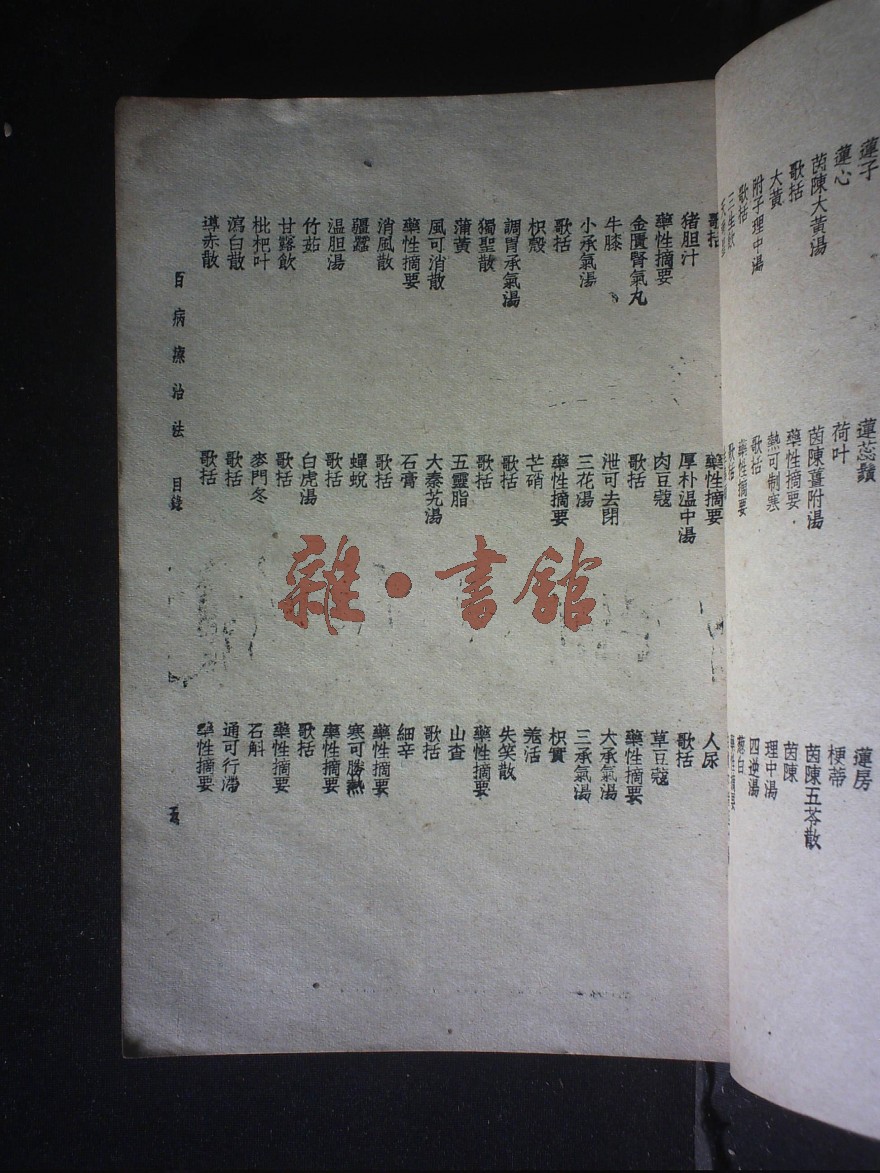 蓮子
蓮蕊鬚
蓮房
蓮心
荷叶
梗蒂
茵陳大黃湯
茵陳薑附湯
茵陳五苓散
歌括
藥性摘要
茵陳
大黃
熱可制寒
理中湯
附子理中湯
歌括
四逆湯
歌括
藥性摘要
葱白
三生飲
歌括
藥性摘要
歌括
藥性摘要
人尿
猪胆汁
厚朴溫中湯
歌括
藥性摘要
肉豆蔻
草豆蔻
金匱腎氣丸
歌括
藥性摘要
牛膝
泄可去閉
大承氣湯
小承氣湯
三花湯
三承氣湯
歌括
藥性摘要
枳實
枳殼
芒硝
羗活
調胃承氣湯
歌括
失笑散
獨聖散
歌括
藥性摘要
蒲黃
五靈脂
山查
風可消散
大秦艽湯
歌括
藥性摘要
石膏
細辛
消風散
歌括
藥性摘要
疆蠶
蟬蛻
寒可勝熱
溫胆湯
歌括
藥性摘要
竹茹
白虎湯
歌括
甘露飲
歌括
藥性摘要
枇杷叶
麥門冬
石斛
瀉白散
歌括
通可行滯
導赤散
歌括
藥性摘要
百病療治法 目錄 五
雜·書舘